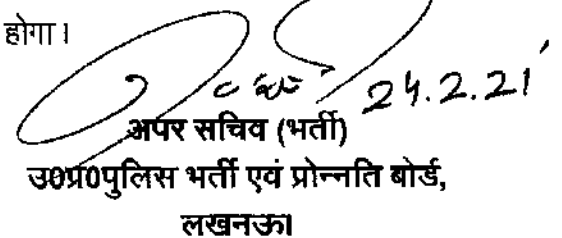 होगा।
24.2.21
अपर सचिव (भर्ती)
उ0प्र0पुलिस भर्ती एवं प्रोन्नति बोर्ड,
लखनऊ।